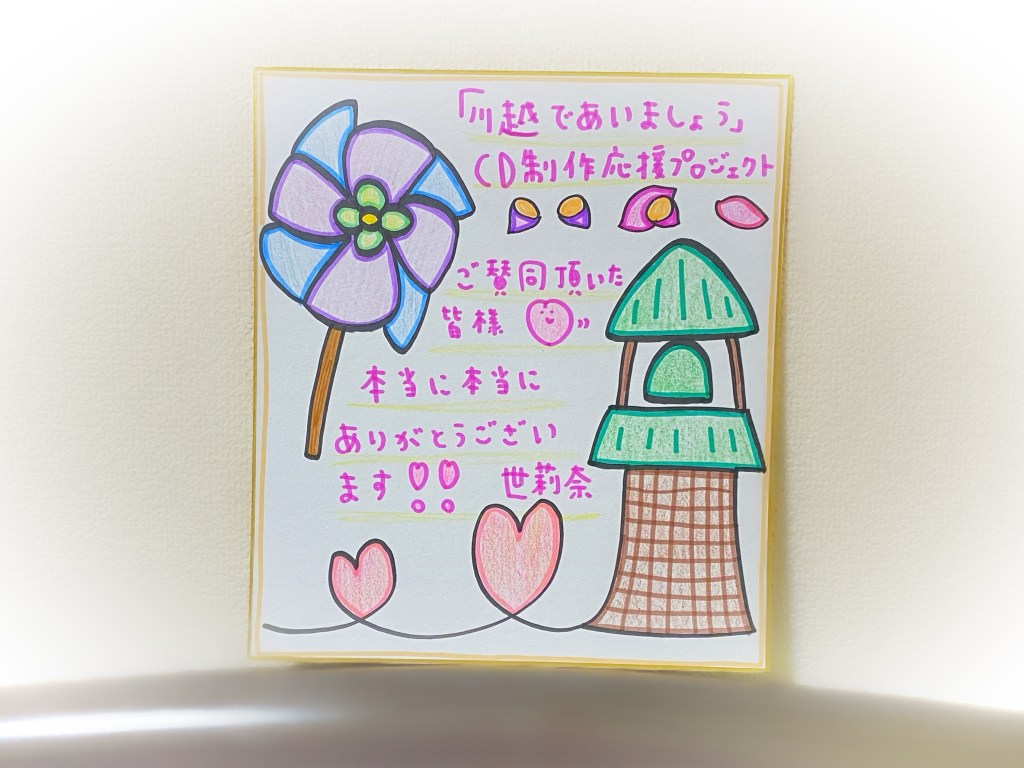 「川越であいましょう」
CD制作応援プロジェクト
ご賛同頂いた
皆様
本当に本当に
ありがとうござい
ます!! 世莉奈